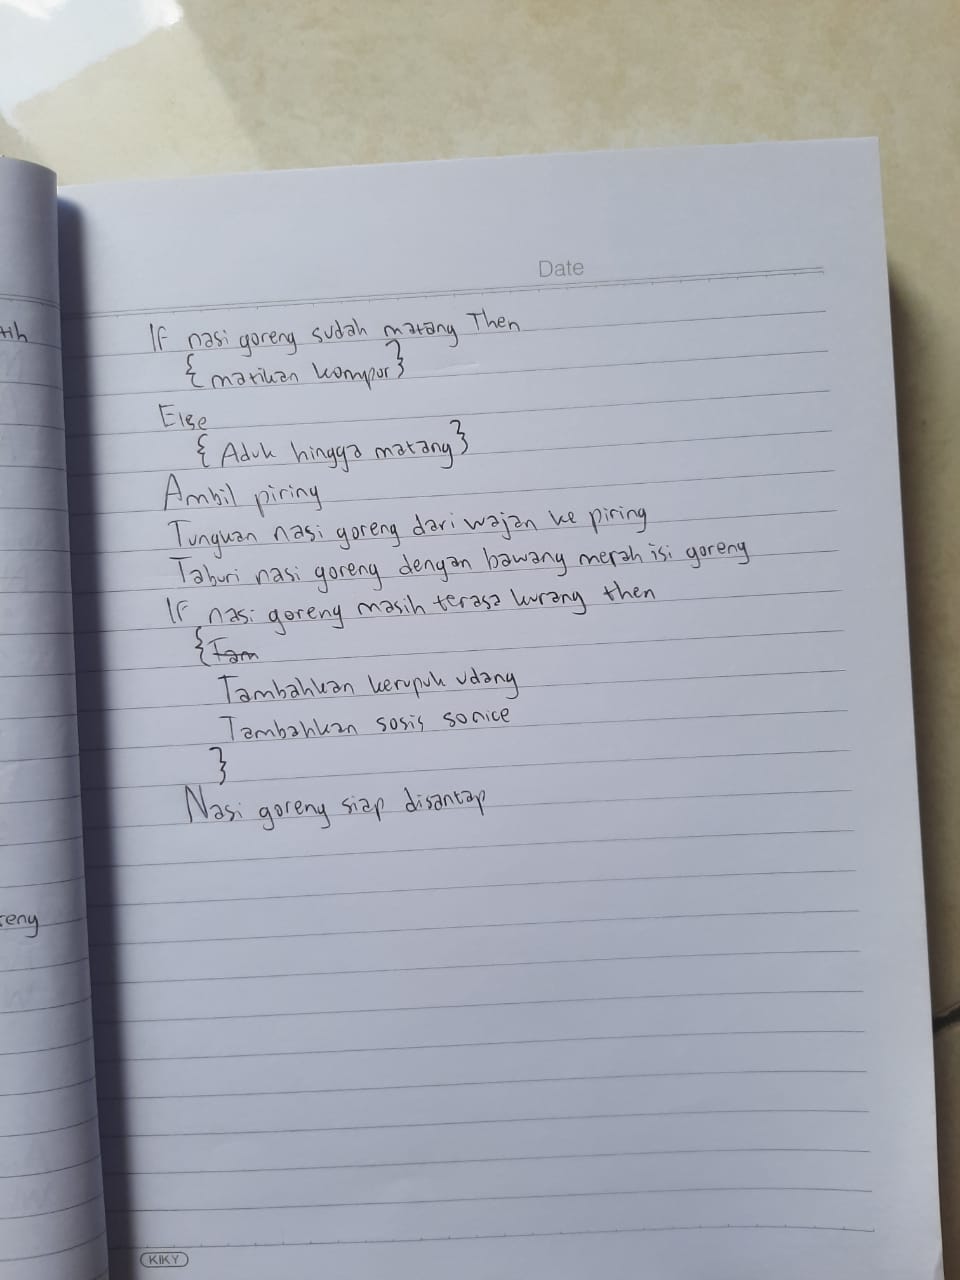 Date
If nasi goreng sudah matang Then
{ matikan kompor }
Else
{ Aduk hingga matang }
Ambil piring
Tunguan nasi goreng dari wajan ke piring
Taburi nasi goreng dengan bawang merah isi goreng
If nasi goreng masih terasa kurang then
{ Tam
Tambahkan kerupuk udang
Tambahkan sosis sonice
}
Nasi goreng siap disantap
KIKY